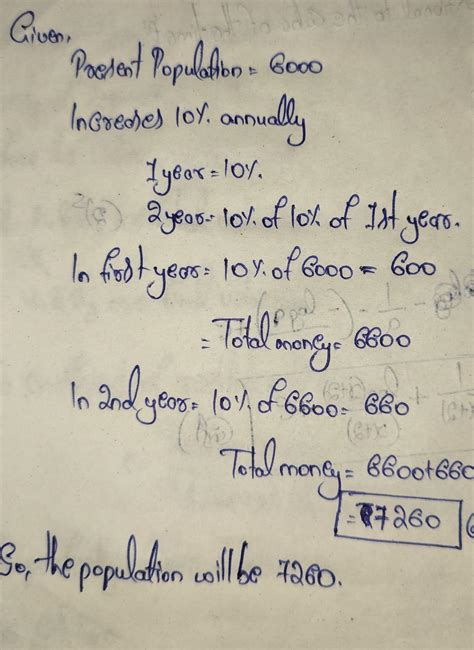 Given,
Present Population = 6000
Increases 10% annually
1 year = 10%.
2 year = 10% of 10% of 1st year.
In first year = 10% of 6000 = 600
= Total money = 6600
In 2nd year = 10% of 6600 = 660
Total money = 6600+660
= 7260
So, the population will be 7260.